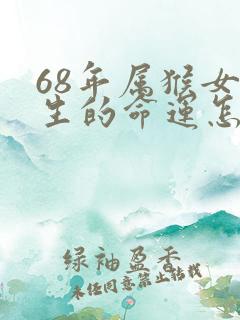 68年属猴女
生的命运怎
绿袖盈香
未经同意禁止转载